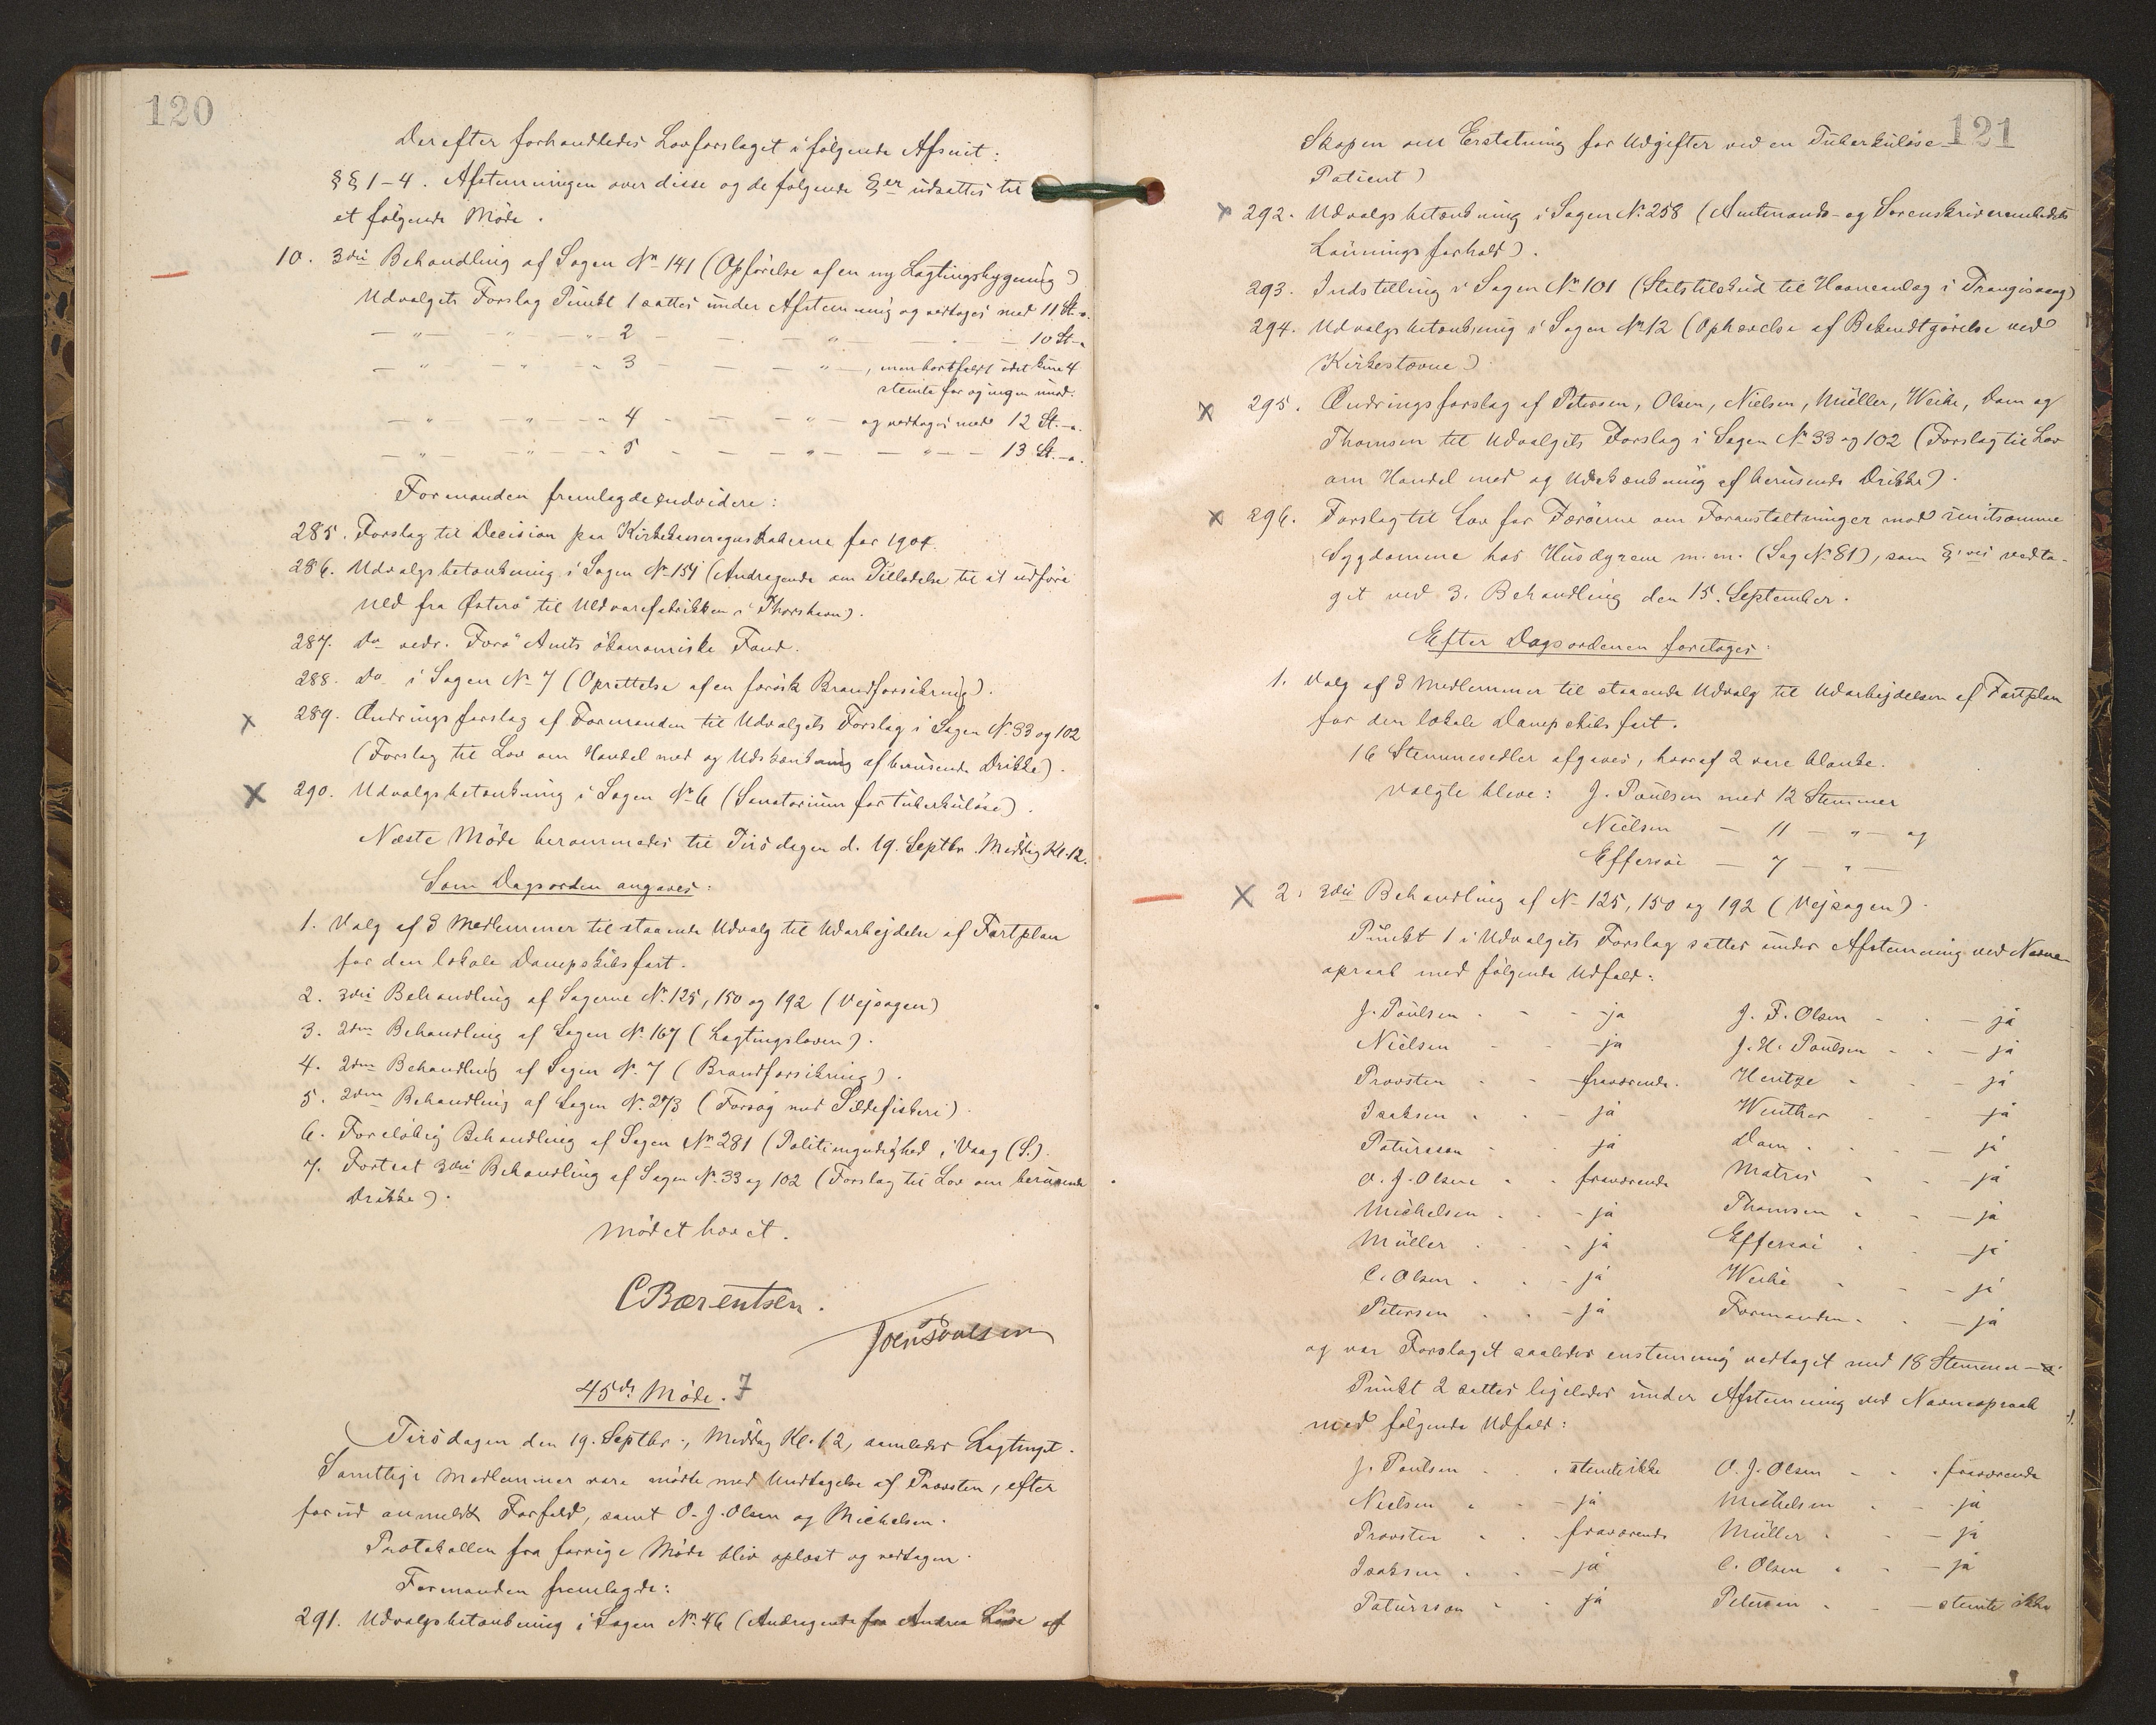 120
Derefter forhandledes Lovforslaget i følgende Afsnit:
§§ 1-4. Afstemningen over disse og de følgende §er udsattes til
et følgende Møde.
10. 3die Behandling af Sagen No 141 (Opførelse af en ny Lagtingsbygning)
Udvalgets Forslag Punkt 1 sattes under Afstemning og vedtoges med 11 St.-o.
— " — " — " — 2 — — — " — — " — — 10 St.-o.
— " — " — " — 3 — — — " —, men bortfaldt idet kun 4
stemte for og ingen imod.
— " — " — " — 4 — — — " — og vedtoges med 12 St.-o.
— " — " — " — 5 — — — " — — " — — 13 St.-o.
Formanden fremlagde endvidere:
285. Forslag til Decision paa Kirkekasseregnskaberne for 1904.
286. Udvalgsbetænkning i Sagen No 154 (Andragende om Tilladelse til at udføre
Uld fra Østerø til Uldvarefabrikken i Thorshavn).
287. Do vedr. Færø Amts økonomiske Fond.
288. Do i Sagen No 7 (Oprettelse af en færøsk Brandforsikring).
289. Ændringsforslag af Formanden til Udvalgets Forslag i Sagen No 33 og 102
(Forslag til Lov om Handel med og Udskænkning af berusende Drikke).
290. Udvalgsbetænkning i Sagen No 6 (Sanatorium for tuberkuløse).
Næste Møde berammedes til Tirsdagen d. 19. Septbr. Middag Kl. 12.
Som Dagsorden angaves:
1. Valg af 3 Medlemmer til staaende Udvalg til Udarbejdelse af Fartplan
for den lokale Dampskibsfart.
2. 3die Behandling af Sagerne No 125, 150 og 192 (Vejsagen)
3. 2den Behandling af Sagen No 167 (Lagtingsloven).
4. 2den Behandling af Sagen No 7 (Brandforsikring).
5. 2den Behandling af Sagen No 273 (Forsøg med Sildefiskeri).
6. Foreløbig Behandling af Sagen No 281 (Politimyndighed i Vaag (S.).
7. Fortsat 3die Behandling af Sagen No 33 og 102 (Forslag til Lov om berusende
Drikke).
Mødet hævet.
C Bærentsen.
Joen Poulsen
45de Møde. 7
Tirsdagen den 19. Septbr., Middag Kl. 12, samledes Lagtinget.
Samtlige Medlemmer vare mødte med Undtagelse af Provsten, efter
forud anmeldt Forfald, samt O. J. Olsen og Michelsen.
Protokollen fra forrige Møde blev oplæst og vedtagen.
Formanden fremlagde:
291. Udvalgsbetænkning i Sagen No 46 (Andragende fra Andrea af
121
Skopen om Erstatning for Udgifter ved en Tuberkuløse-
Patient)
292. Udvalgsbetænkning i Sagen No 258 (Amtmands- og Sorenskriverembedets
Lønningsforhold).
293. Indstilling i Sagen No 101 (Statstilskud til Havneanlæg i Trangisvaag)
294. Udvalgsbetænkning i Sagen No 12 (Ophævelse af Bekendtgørelse ved
Kirkestævne).
295. Ændringsforslag af Petersen, Olsen, Nielsen, Müller, Weihe, Dam og
Thomsen til Udvalgets Forslag i Sagen No 33 og 102 (Forslag til Lov
om Handel med og Udskænkning af berusende Drikke).
296. Forslag til Lov for Færøerne om Foranstaltninger mod smitsomme
Sygdomme hos Husdyrene m. m. (Sag No 81), som §vis vedta-
get ved 3. Behandling den 15. September.
Efter Dagsordenen foretoges:
1. Valg af 3 Medlemmer til staaende Udvalg til Udarbejdelsen af Fartplan
for den lokale Dampskibsfart.
16 Stemmesedler afgaves, hvoraf 2 vare blanke.
Valgte bleve: J. Poulsen med 12 Stemmer
Nielsen — 11 — " — og
Effersøe — 7 — " —
2. 3die Behandling af No 125, 150 og 192 (Vejsagen).
Punkt 1 i Udvalgets Forslag sattes under Afstemning ved Navne-
opraab med følgende Udfald:
J. Poulsen - - - ja J. F. Olsen - - - ja
Nielsen - - - ja J. H. Poulsen - - - ja
Provsten - - fraværende. Hentze - - - ja
Isaksen - - - ja Winther - - - ja
Patursson - - ja Dam - - - ja
O. J. Olsen - - fraværende Matras - - - ja
Michelsen - - - ja Thomsen - - - ja
Müller - - - ja Effersøe - - - ja
C. Olsen - - - ja Weihe - - - ja
Petersen - - - ja Formanden - - - ja
og var Forslaget saaledes enstemmig vedtaget med 18 Stemmer -o.
Punkt 2 sattes ligeledes under Afstemning ved Navneopraab
med følgende Udfald:
J. Poulsen - - stemte ikke O. J. Olsen - - - fraværende
Nielsen - - - ja Michelsen - - - ja
Provsten - - - fraværende Müller - - - ja
Isaksen - - - ja C. Olsen - - - ja
Patursson - - ja Petersen - - - stemte ikke